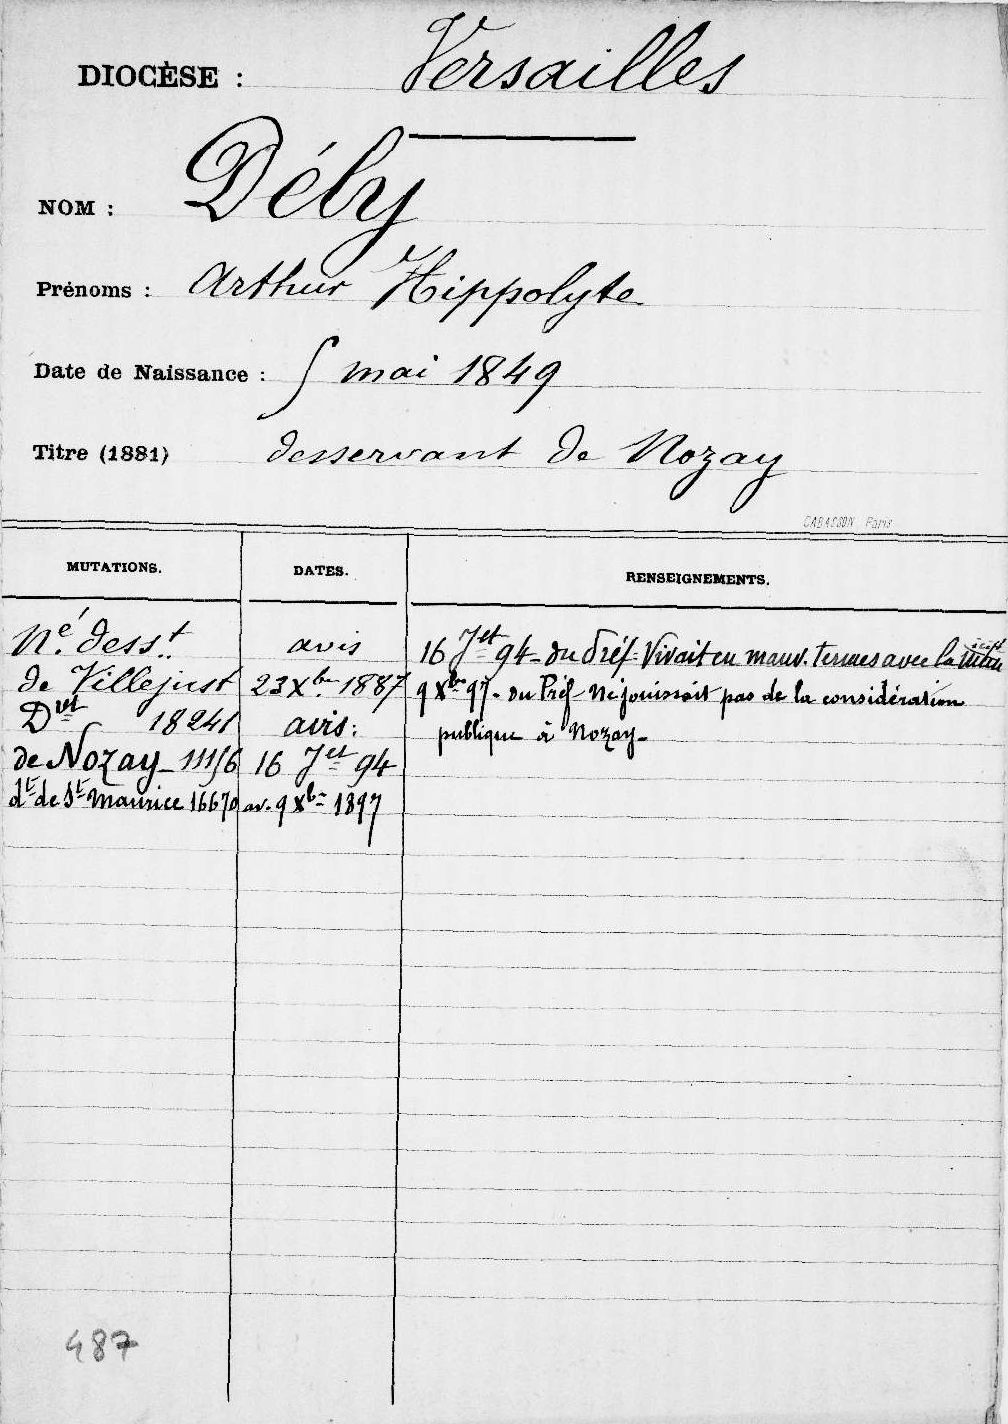 DIOCÈSE : Versailles
NOM : Déby
Prénoms : Arthur Hippolyte
Date de Naissance : 5 mai 1849
Titre (1881) desservant de Nozay
CABASSON Paris
MUTATIONS. DATES. RENSEIGNEMENTS.
Né. dess.t avis 16 Jet 94 - du Préf - Vivait en mauv. termes avec la
de Villejust 23 Xbre 1887 9 Xbre 97 - du Préf - Ne jouissait pas de la considération
Dvet 18241 avis: publique à Nozay -
de Nozay - 11156 16 Jet 94
dt de St Maurice 16670 av. 9 Xbre 1897
487